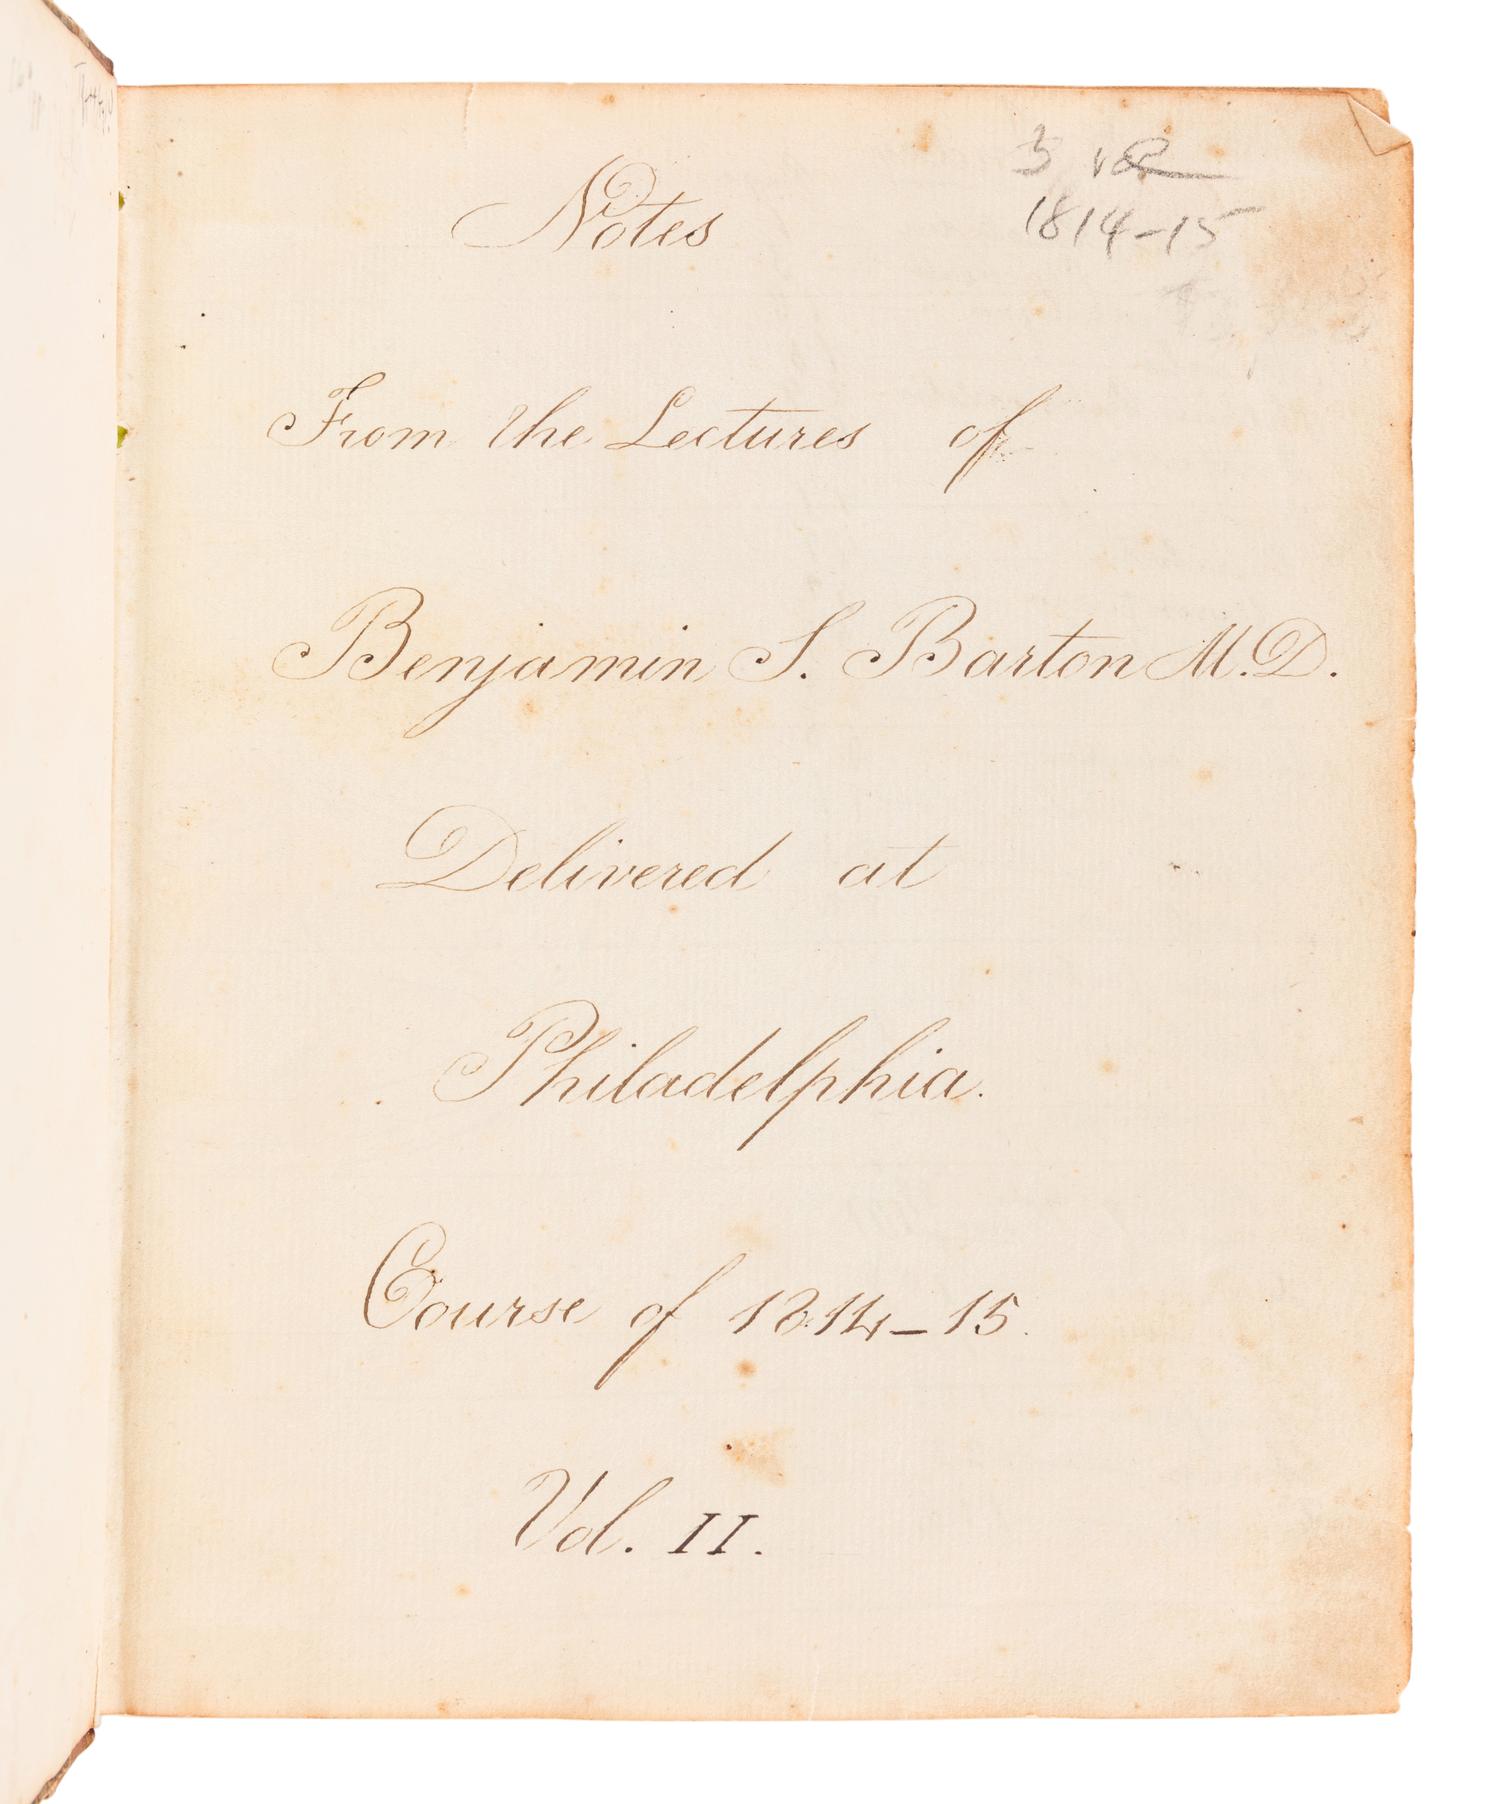 3 vol
1814-15
Notes
From the Lectures of
Benjamin S. Barton M.D.
Delivered at
Philadelphia.
Course of 1814-15.
Vol. II.